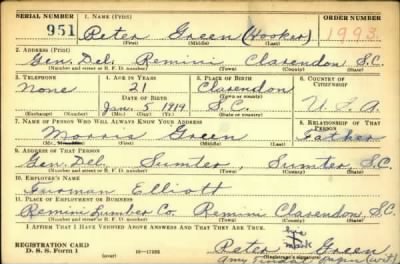 SERIAL NUMBER 1. NAME (Print) ORDER NUMBER
951 Peter Green (Hooker) 1993
(First) (Middle) (Last)
2. ADDRESS (Print)
Gen. Del. Remini Clarendon S.C.
(Number and street or R. F. D. number) (Town) (County) (State)
3. TELEPHONE 4. AGE IN YEARS 5. PLACE OF BIRTH 6. COUNTRY OF CITIZENSHIP
None 21 Clarendon
DATE OF BIRTH (Town or county)
Jan. 5 1919 S.C. U.S.A.
(Exchange) (Number) (Mo.) (Day) (Yr.) (State or country)
7. NAME OF PERSON WHO WILL ALWAYS KNOW YOUR ADDRESS 8. RELATIONSHIP OF THAT PERSON
Morris Green Father
(Mr., Mrs., Miss) (First) (Middle) (Last)
9. ADDRESS OF THAT PERSON
Gen. Del. Sumter, Sumter, S.C.
(Number and street or R. F. D. number) (Town) (County) (State)
10. EMPLOYER'S NAME
Furman Elliott
11. PLACE OF EMPLOYMENT OR BUSINESS
Remini Lumber Co. Remini Clarendon, S.C.
(Number and street or R. F. D. number) (Town) (County) (State)
I AFFIRM THAT I HAVE VERIFIED ABOVE ANSWERS AND THAT THEY ARE TRUE.
his
mark
REGISTRATION CARD Peter Green
D. S. S. Form 1 (over) (Registrant's signature)
(wit)